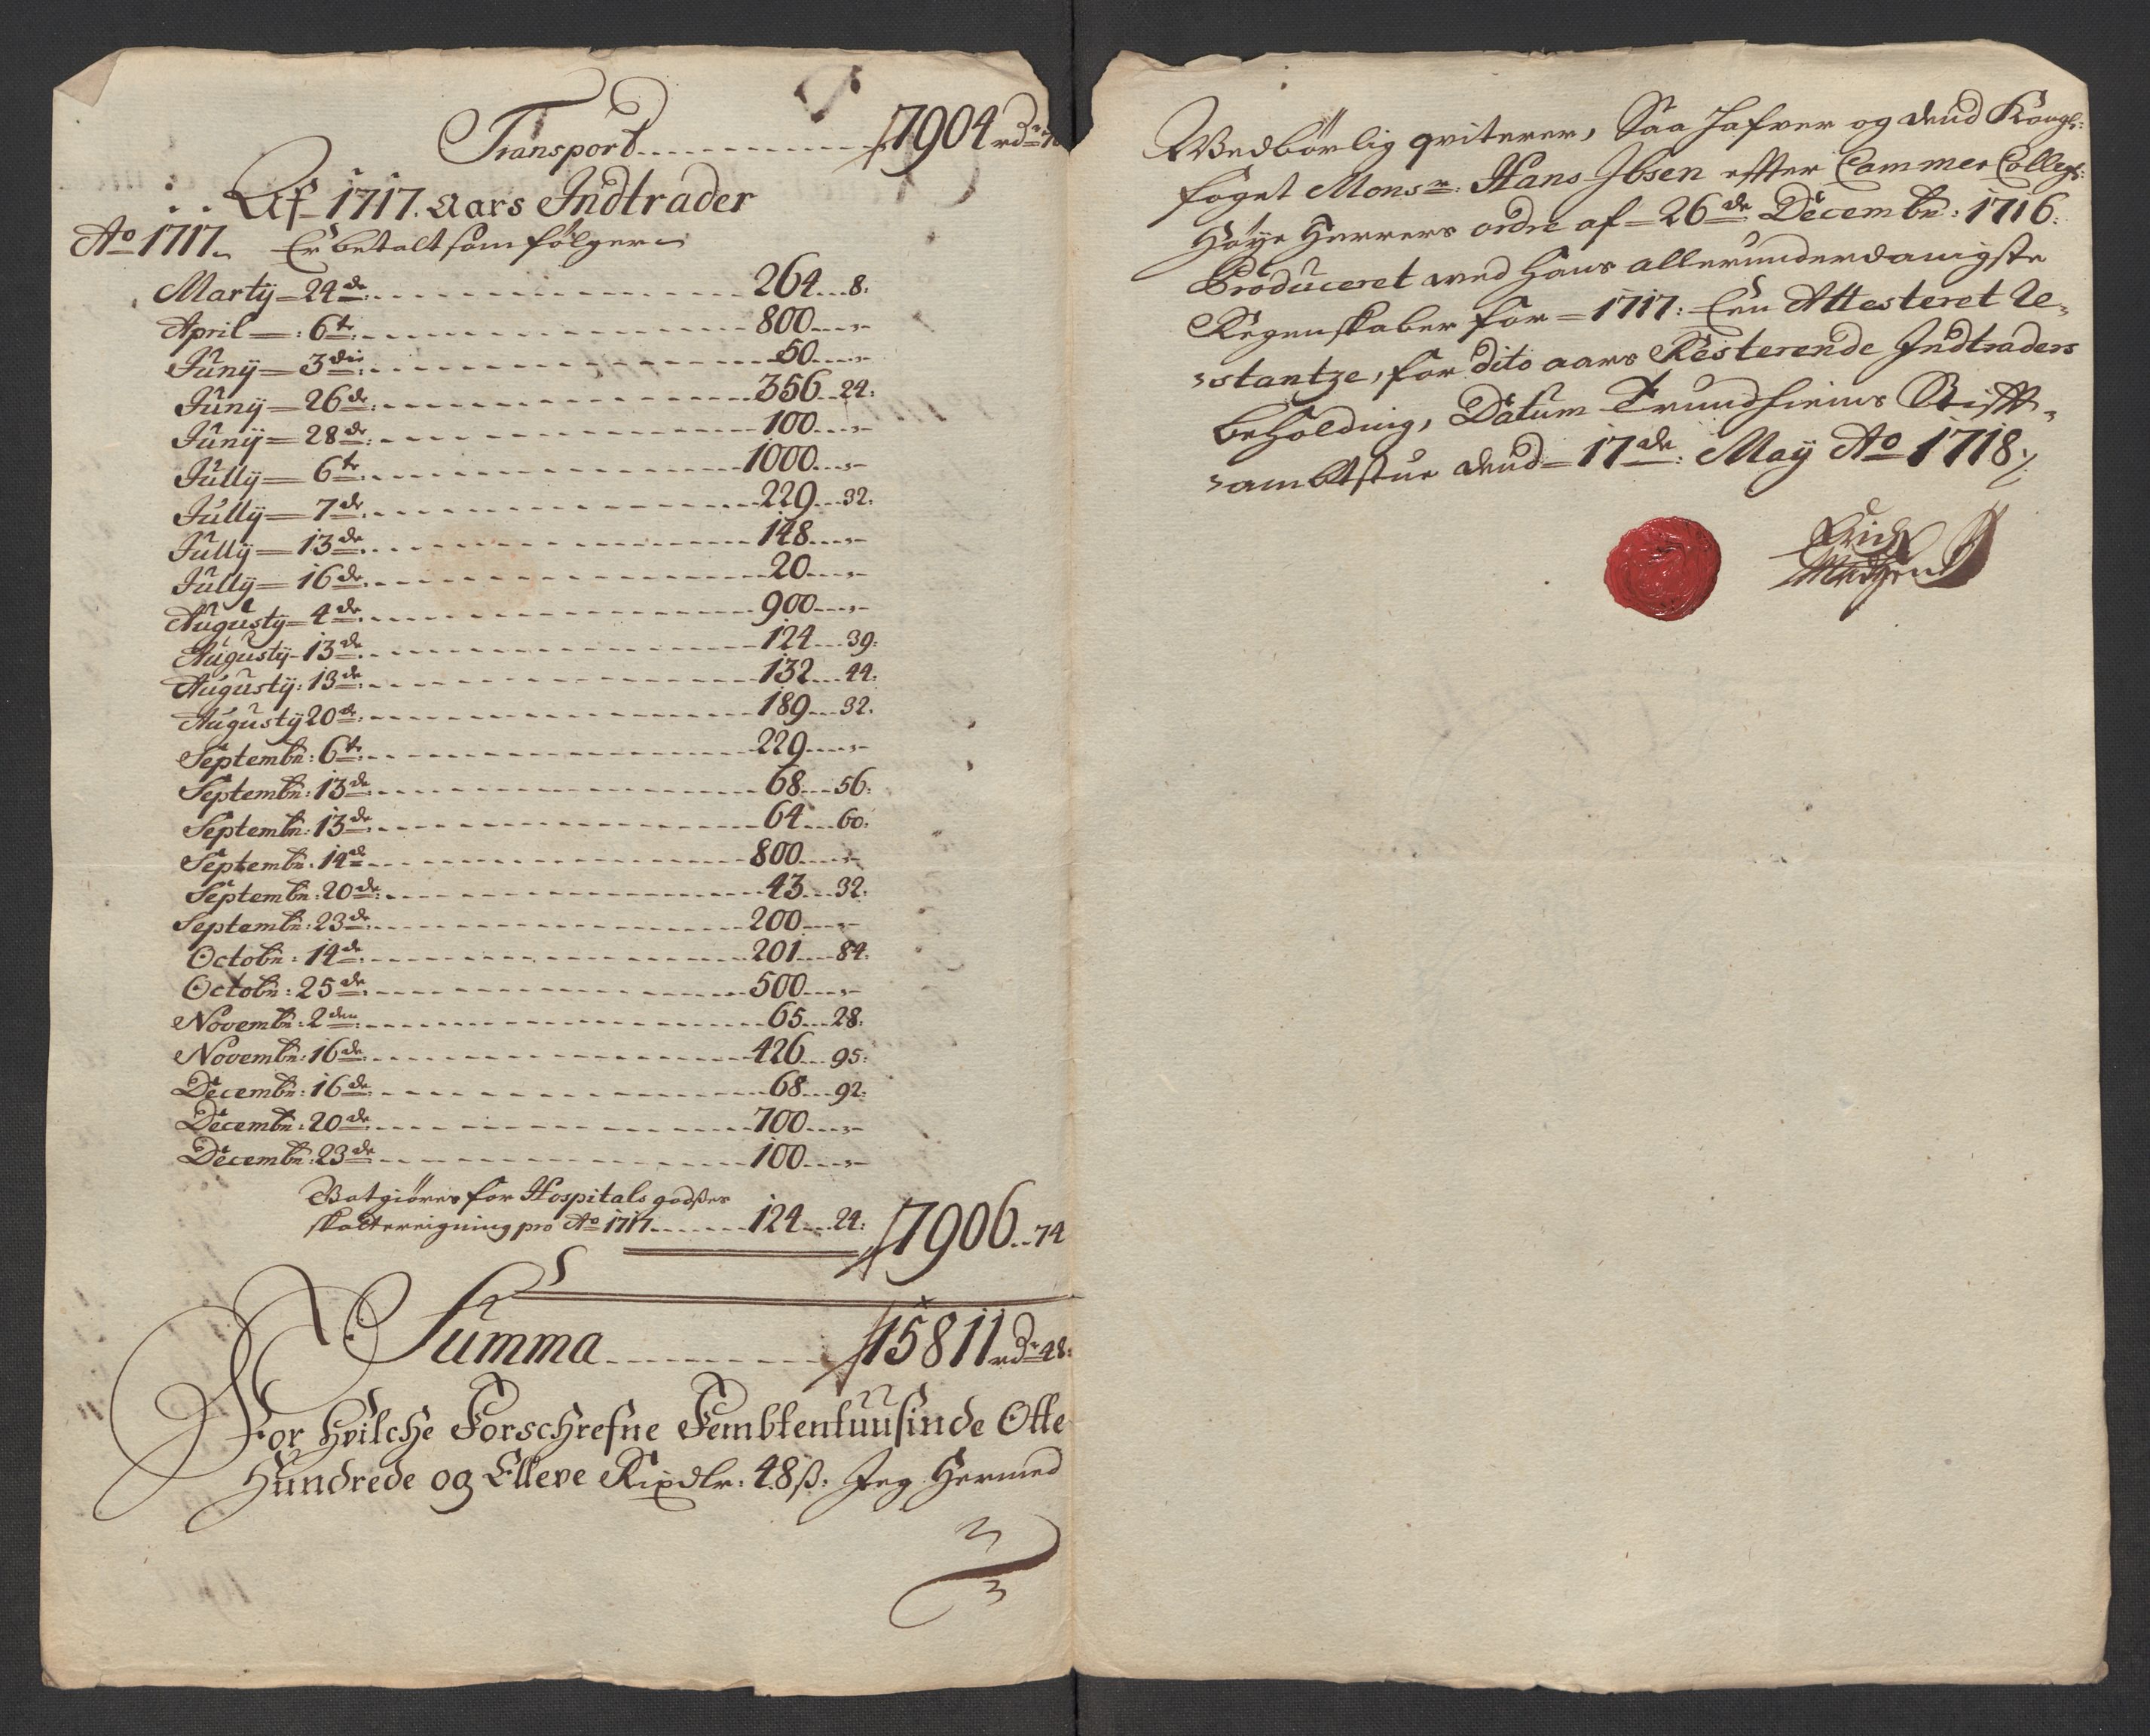 Transport 7904 rdr 70
Af 1717. aars Indtrader
Ao 1717. Er betalt som følger
Marty 24de 264 8:
April 6te 800
Juny 3die 50
Juny 26de 356 24:
Juny 28de 100
Jully 6te 1000
Jully 7de 229 32:
Jully 13de 148
Jully 16de 20
Augusty 4de 900
Augusty 13de 124 39:
Augusty: 13de 132 44:
Augusty 20de 189 32.
Septembr: 6te 229
Septembr: 13de 68 56:
Septembr: 13de 64 60:
Septembr: 14de 800
Septembr: 20de 43 32:
Septembr: 23de 200
Octobr: 14de 201 84:
Octobr: 25de 500
Novembr: 2den 65 28:
Novembr: 16de 426 95:
Decembr: 16de 68 92:
Decembr: 20de 700
Decembr: 23de 100
Botgiøres for Hospitals godßes
skatters pro Ao 1717 124 24: 7906 74
Summa 15811 rdr 48:
For Hvilche Forschrefne Fembtentuusinde Otte
Hundrede og Elleve Rixdlr: 48 ß: Jeg Hermed
Wedbørlig qviterer, Saa hafver og dend Kongl:
foget Monsr: Hans Ibsen effter Cammer Collegs:
Høye Herrers ordre af 26de Decembr: 1716:
Produceret wed hans allerunderdanigste
Regenskaber for 1717: Een Attesteret Re-
stantze, for dito aars Resterende Indtraders
beholdnig, Datum Trundhiems Stifft-
ambtstue dend 17de: May Ao 1718